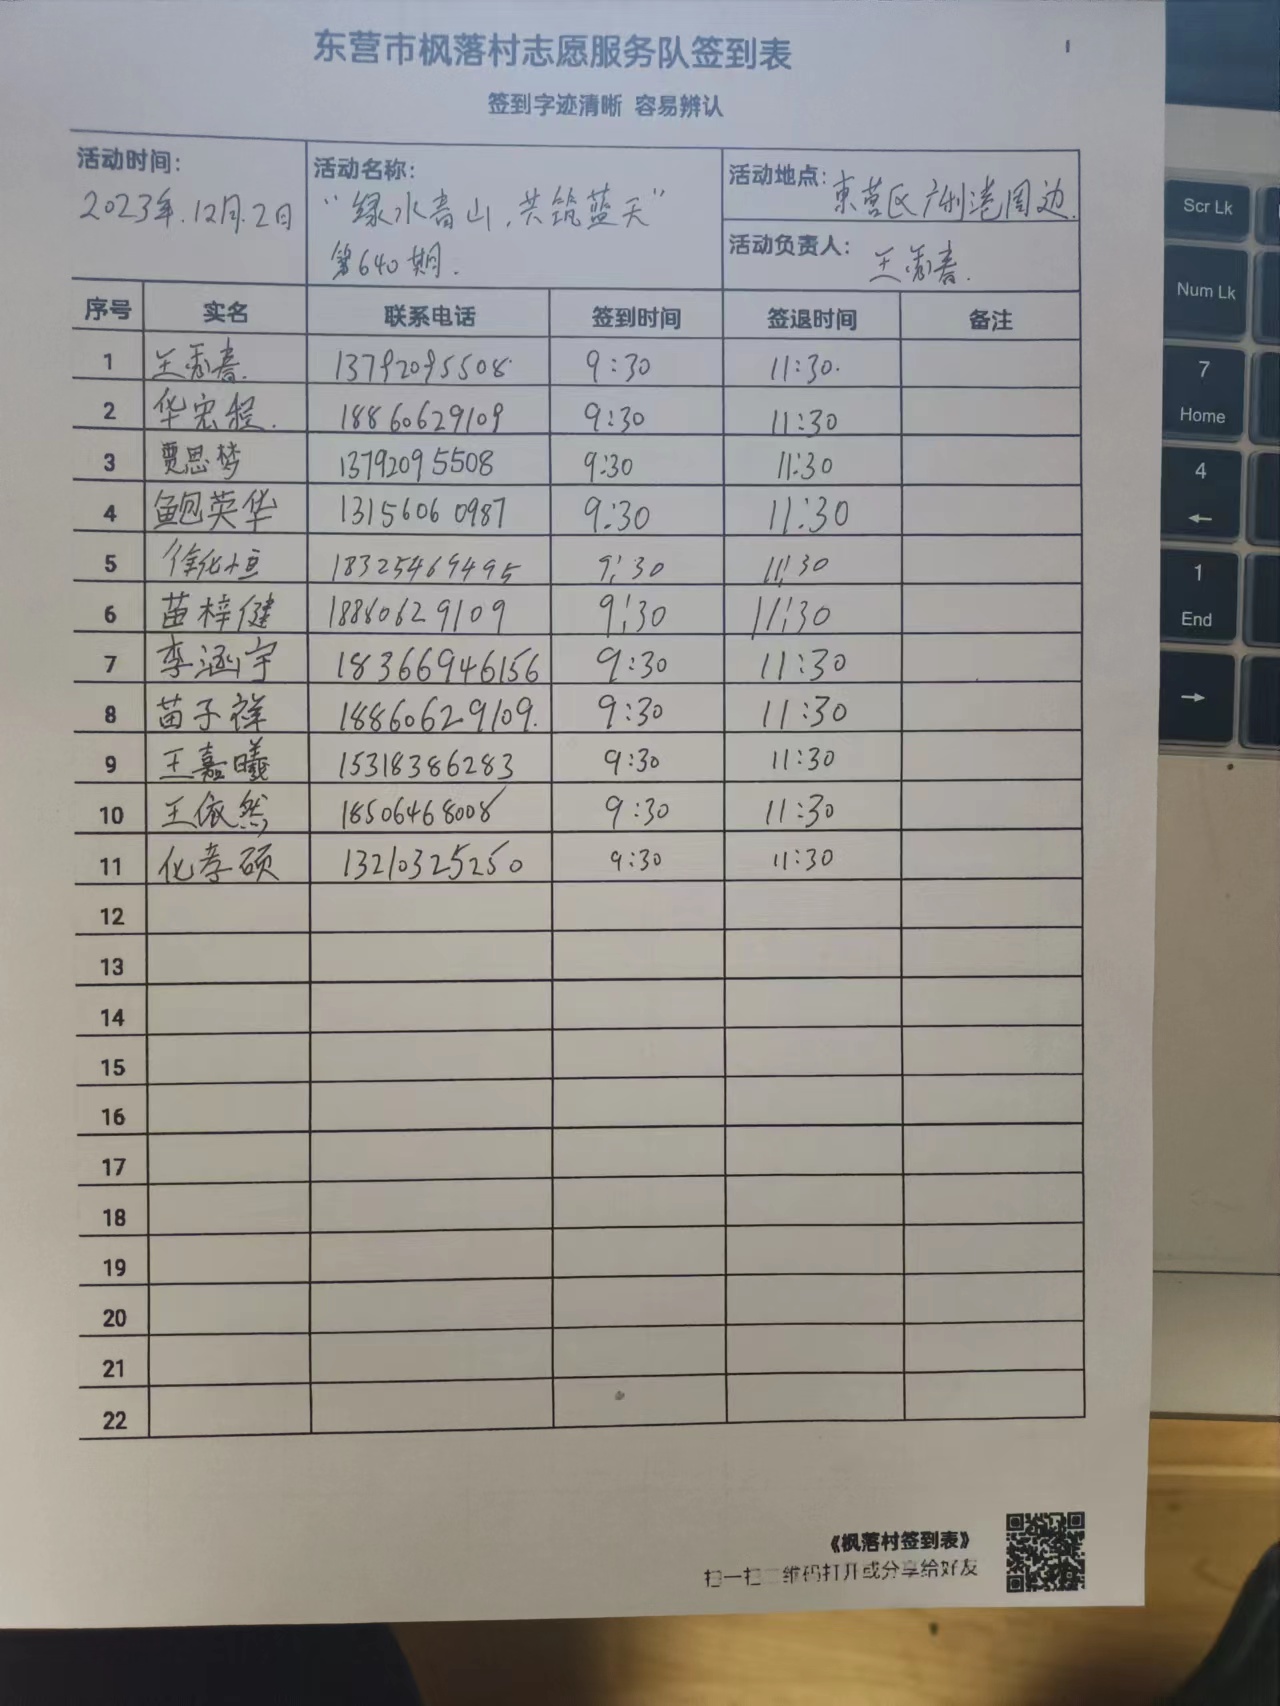 东营市枫落村志愿服务队签到表
签到字迹清晰 容易辨认
活动时间：
2023年.12月.2日
活动名称：
“绿水青山,共筑蓝天”
第640期.
活动地点：東营区广利港周边.
活动负责人：王秀春.
序号 实名 联系电话 签到时间 签退时间 备注
1 王秀春. 13792095508 9:30 11:30.
2 华宏程. 18860629109 9:30 11:30
3 贾思梦 13792095508 9:30 11:30
4 鲍英华 13156060987 9:30 11:30
5 徐化恒 18325469495 9:30 11:30
6 苗梓健 18860629109 9:30 11:30
7 李涵宇 18366946156 9:30 11:30
8 苗子祥 18860629109. 9:30 11:30
9 王嘉曦 15318386283 9:30 11:30
10 王依然 18506468008 9:30 11:30
11 化孝硕 13210325250 9:30 11:30
12
13
14
15
16
17
18
19
20
21
22
《枫落村签到表》
扫一扫二维码打开或分享给好友
Scr Lk
Num Lk
7
Home
4
←
1
End
→